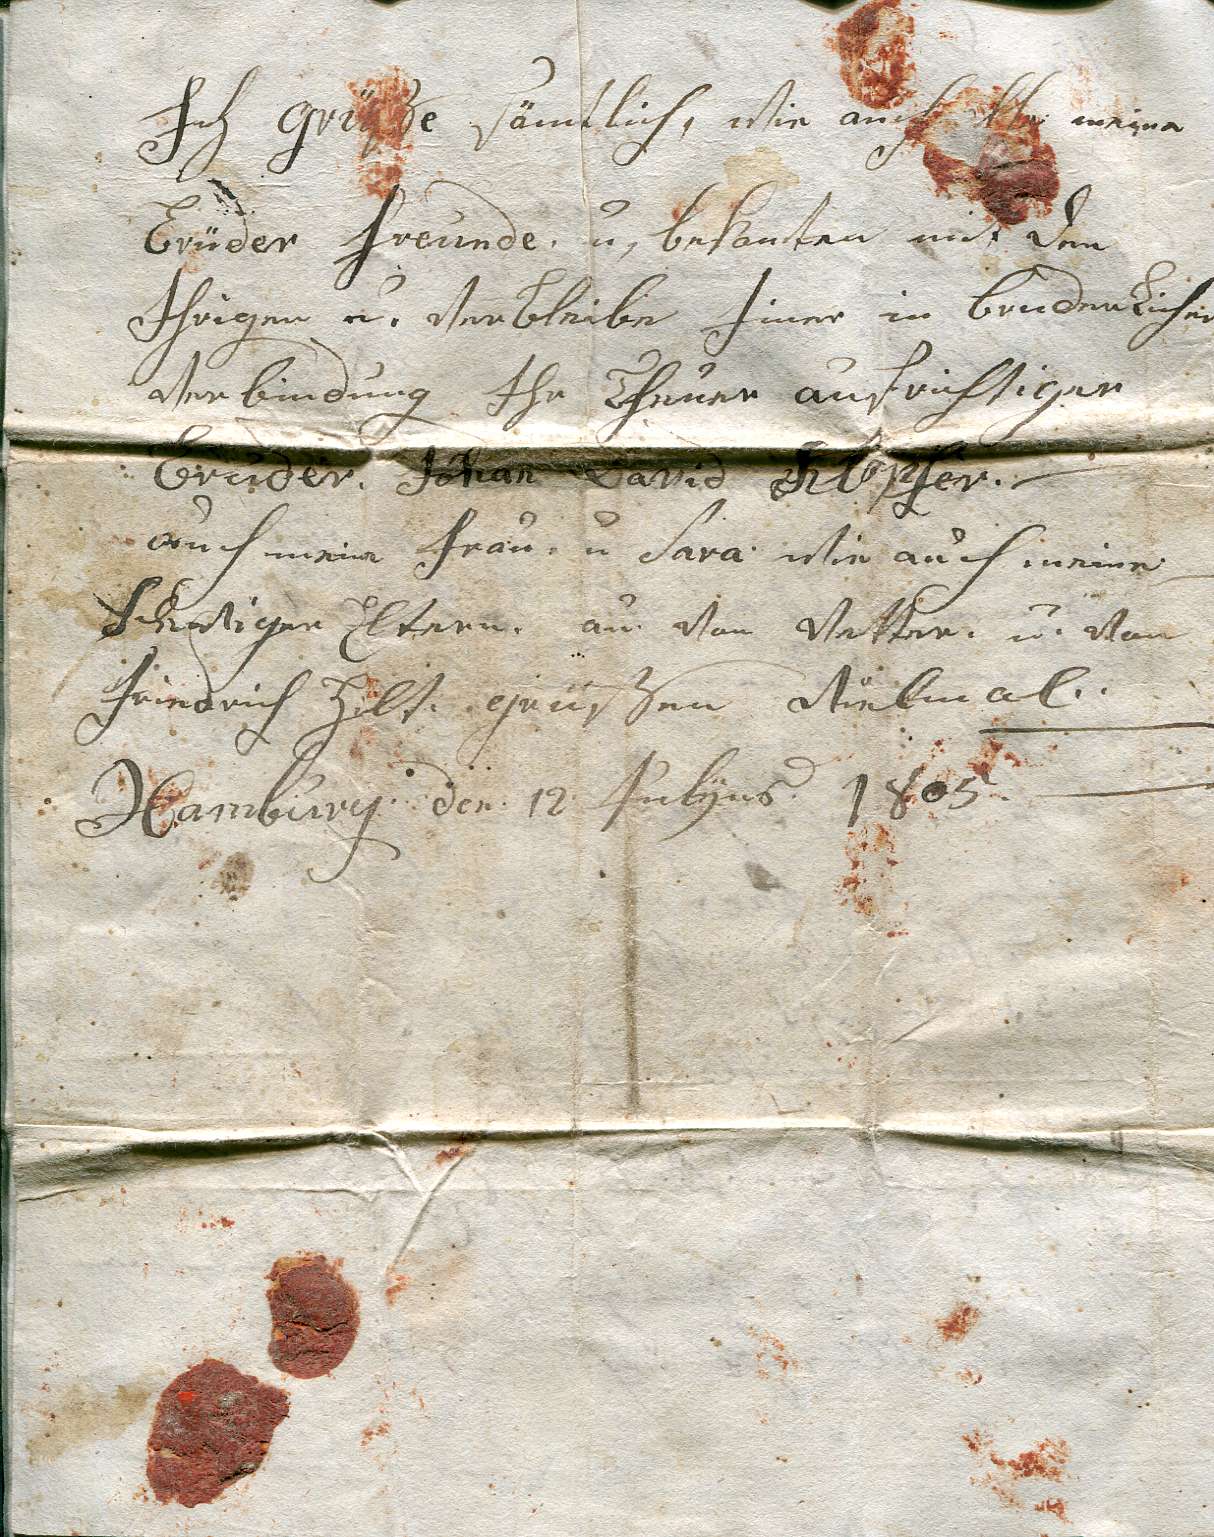 Ich grüße sämtlich, wie auch alle meine
Brüder freunde. u, bekanten mit den
Ihrigen u. verbleibe Imer in bruderlicher
verbindung Ihr Theuer aufrichtiger
Bruder. Johan David
auch meine Frau. u Sara wie auch meine
Eltern. au von Vetter. u. von
Friedrich grüßen vielmal..
Hamburg. den. 12 Julyus 1805.